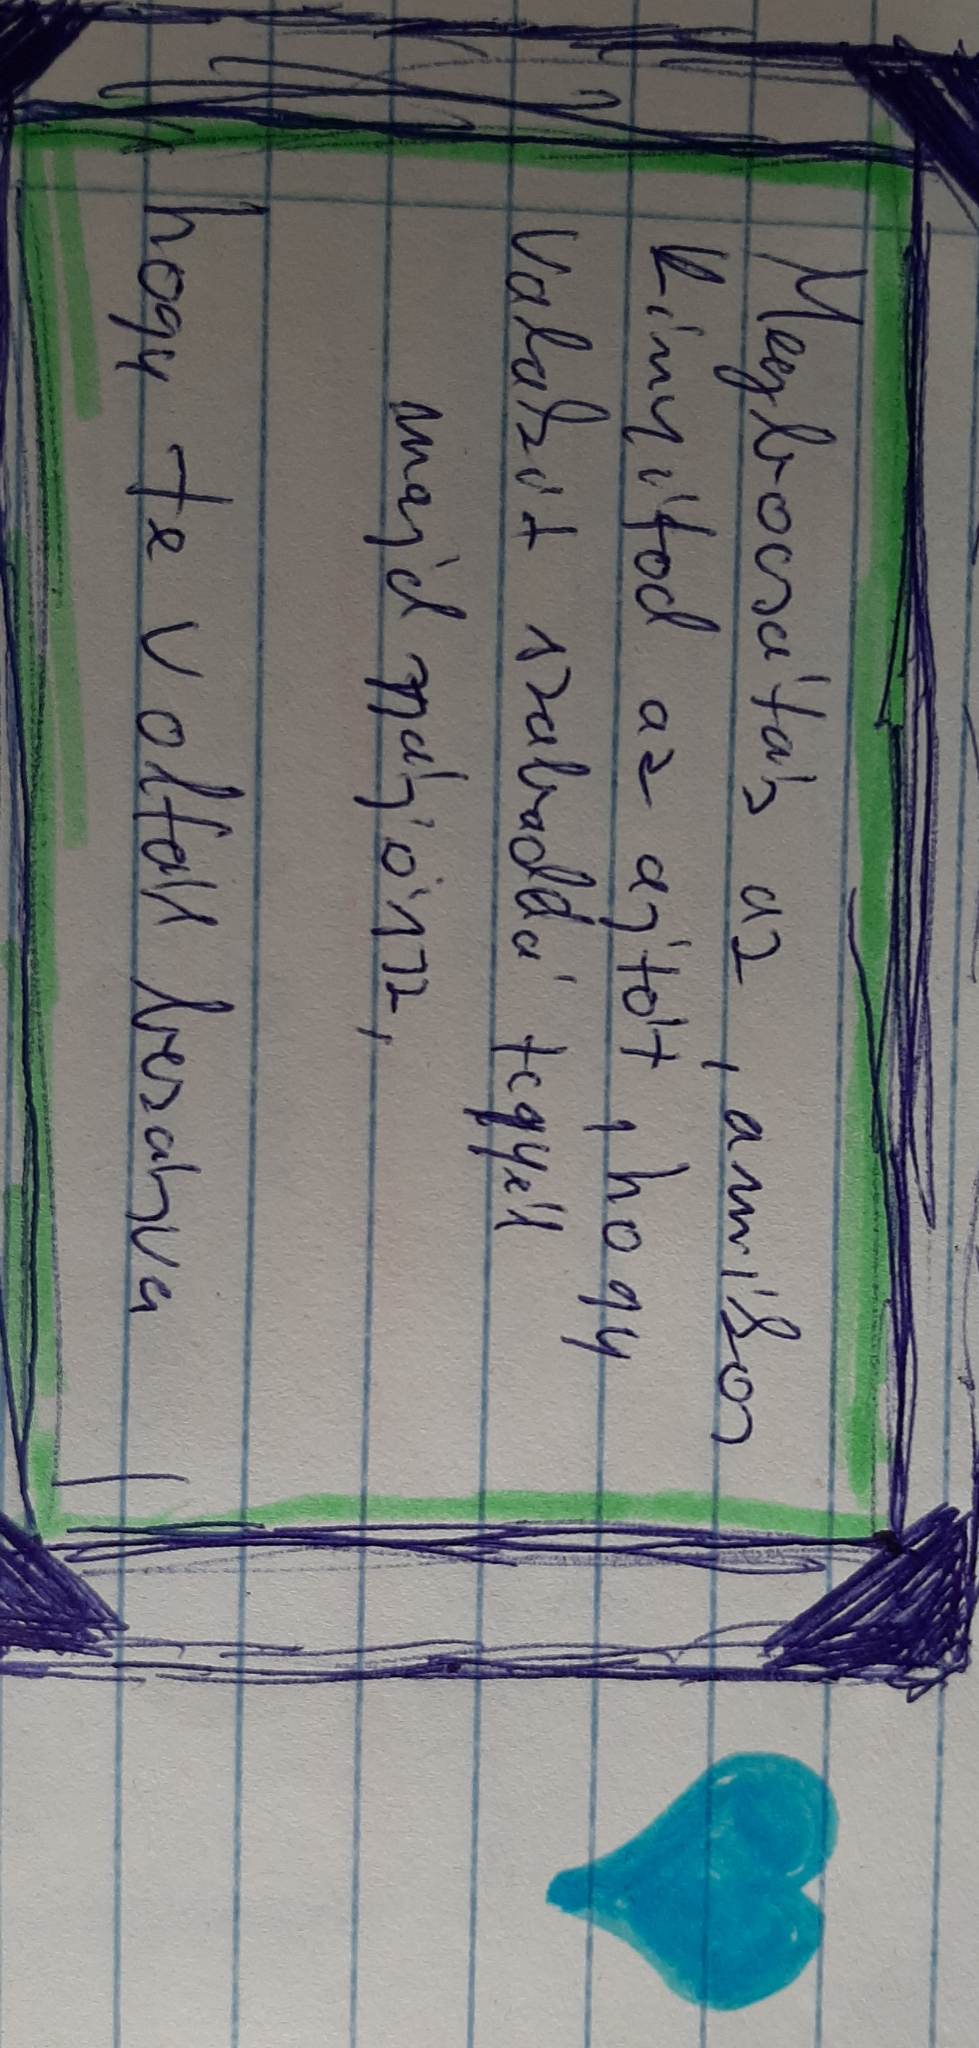 Megbocsátás az, amikor
kinyitod az ajtót, hogy
valakit szabaddá tegyél
majd rájössz,
hogy te voltál bezárva